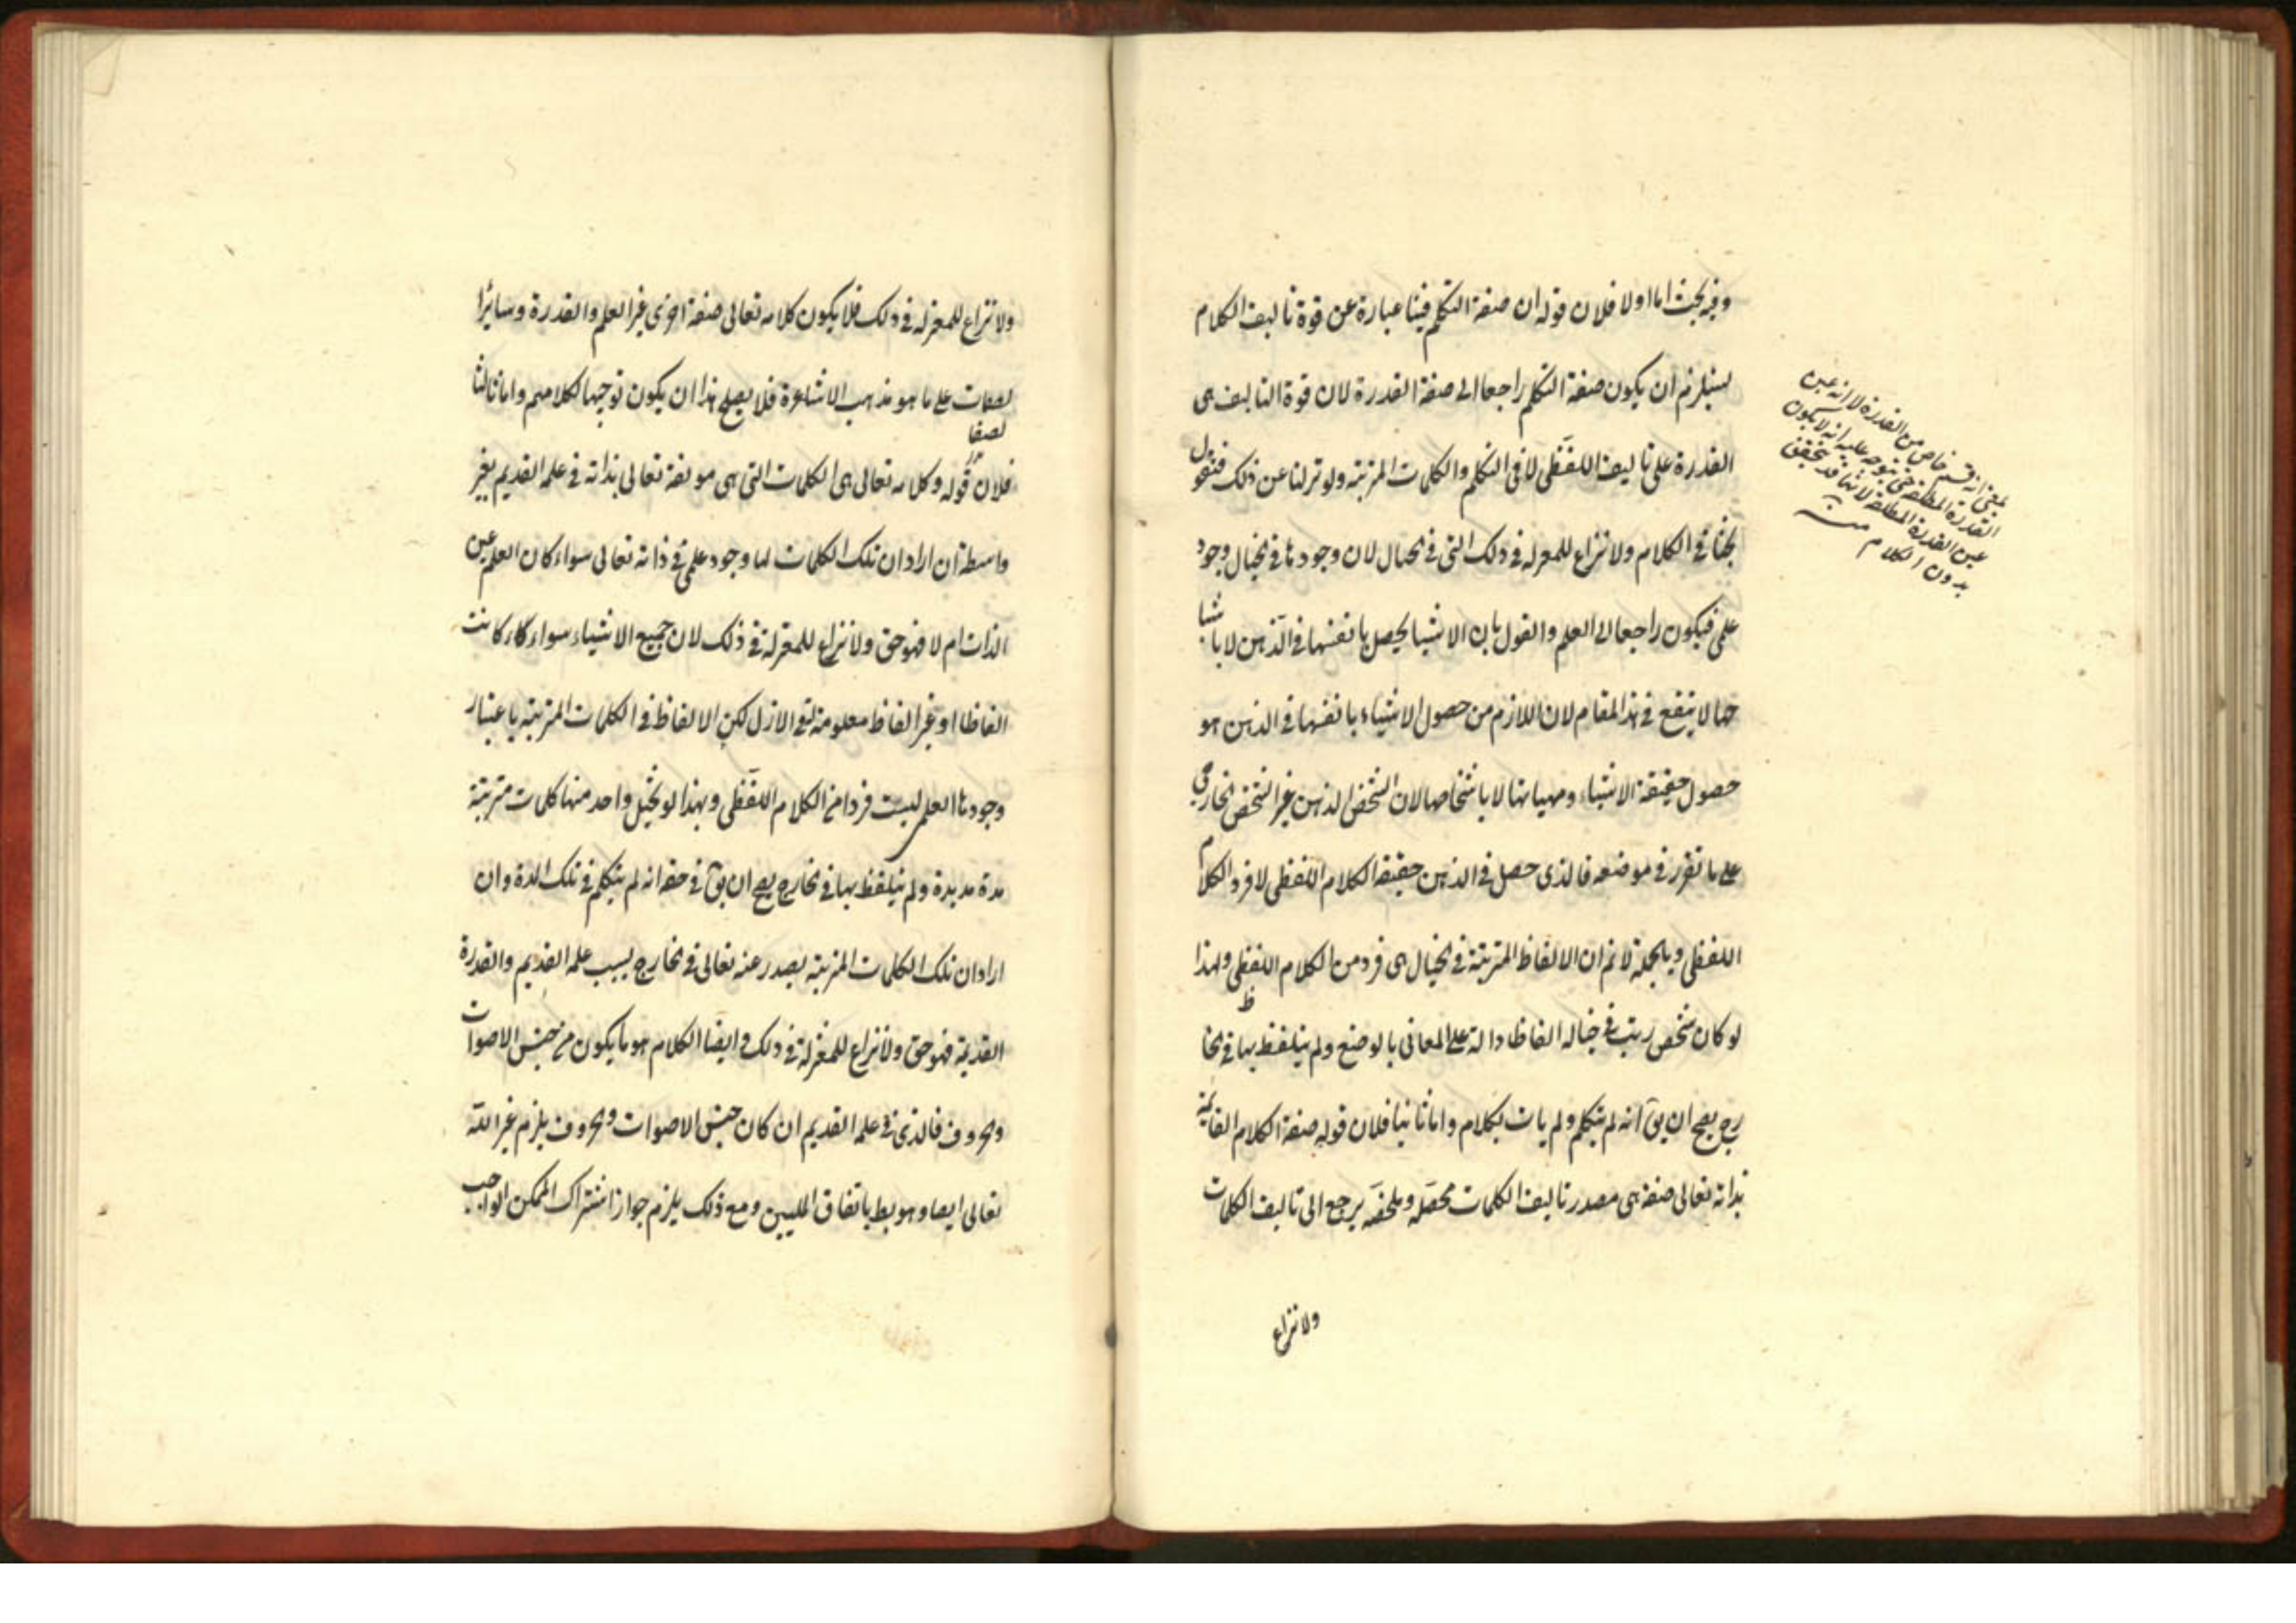 وفيه بحث اما اولا فلان قوله ان صفة التكلم فينا عبارة عن قوة تاليف الكلام
يستلزم ان يكون صفة التكلم راجعا الى صفة القدرة لان قوة التاليف هى
القدرة على تاليف اللفظى لا فى التكلم والكلمات المترتبة ولو تنزلنا عن ذلك فنقول
بحثنا فى الكلام ولا نزاع للمعتزلة فى ذلك التى فى الخيال لان وجودها فى الخيال وجود
علمى فيكون راجعا الى العلم والقول بان الاشيا يحصل بانفسها فى الذهن لا باشبا
حها لا ينفع فى هذا المقام لان اللازم من حصول الاشياء بانفسها فى الذهن هو
حصول حقيقة الاشياء ومهياتها لا باشخاصها لان الشخص الذهن غير الشخص الخارجى
على ما تقرر فى موضعه فالذى حصل فى الذهن حقيقة الكلام اللفظى لا فرد الكلام
اللفظى وبالجملة لا نم ان الالفاظ المترتبة فى الخيال هى فرد من الكلام اللفظى ولهذا
لو كان شخص رتب فى خياله الفاظا دالة على المعانى بالوضع ولم يتلفظ بها فى الخا
رج يصح ان يق انه لم يتكلم ولم يات بكلام واما ثانيا فلان قوله صفة الكلام القايمة
بذاته تعالى صفة هى مصدر تاليف الكلمات محصله وملخصه يرجع الى تاليف الكلمات
ولا نزاع
بمعنى انه قسم خاص من القدرة لا انه عين
القدرة المطلقة حتى يتوجه عليه انه لا يكون
عين القدرة المطلقة لانها قد يتحقق
بدون الكلام منه
ولا نزاع للمعتزلة فى ذلك فلا يكون كلامه تعالى صفة اخرى غير العلم والقدرة وساير ا
لصفات على ما هو مذهب الاشاعرة فلا يصلح هذا ان يكون توجيها لكلامهم واما ثالثا
فلان قوله وكلامه تعالى هى الكلمات التى هى مولفة تعالى بذاته فى علمه القديم بغير
واسطة ان اراد ان تلك الكلمات لها وجود علمى فى ذاته تعالى سواء كان العلم عين
الذات ام لا فهو حق ولا نزاع للمعتزلة فى ذلك لان جميع الاشياء سواء كانت
الفاظا او غير الفاظ معلومة له فى الازل لكن الالفاظ فى الكلمات المترتبة باعتبار
وجودها العلمى ليست فردا من الكلام اللفظى وبهذا لو تخيل واحد منها كلمات مترتبة
مدة مديدة ولم يتلفظ بها فى الخارج يصح ان يق فى حقه انه لم يتكلم فى تلك المدة وان
اراد ان تلك الكلمات المترتبة يصدر عنه تعالى فى الخارج بسبب علمه القديم والقدرة
القديمة فهو حق ولا نزاع للمعتزلة فى ذلك وايضا الكلام هو ما يكون من جنس الاصوات
والحروف فالذى فى علمه القديم ان كان جنس الاصوات والحروف يلزم غير الله
تعالى ايضا وهو بط باتفاق المليين ومع ذلك يلزم جواز اشتراك الممكن الواجب